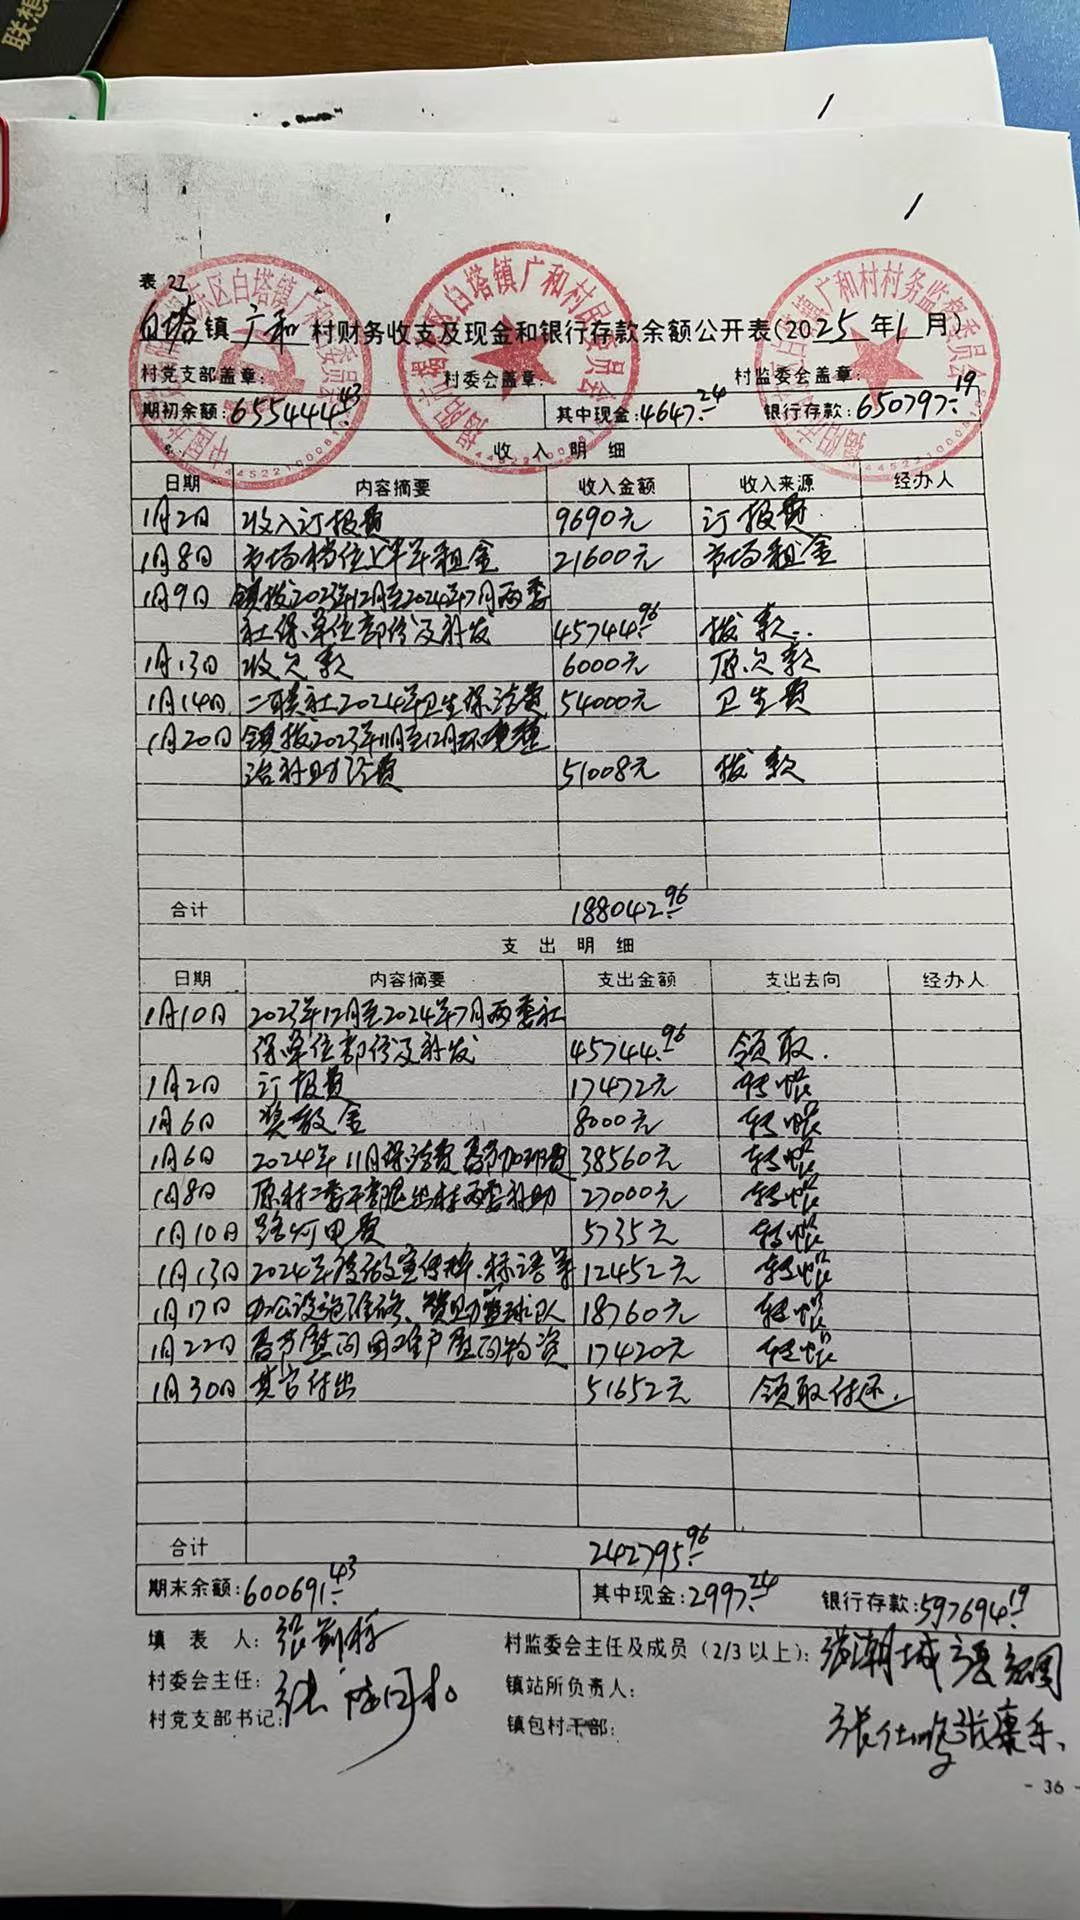 联想
1
1
表 22
白塔镇 广和 村财务收支及现金和银行存款余额公开表(2025年1月)
村党支部盖章: 村委会盖章: 村监委会盖章:
期初余额:655444.43 其中现金:4647.24 银行存款:650797.19
收入明细
日期 内容摘要 收入金额 收入来源 经办人
1月2日 收入订报费 9690元 订报费
1月8日 市场档位上半年租金 21600元 市场租金
1月9日 镇拨2023年12月至2024年7月两委
社保.单位部份及补发 45744.96 拨款
1月13日 收欠款 6000元 原欠款
1月14日 二联社2024年卫生保洁费 54000元 卫生费
1月20日 镇拨2023年11月至12月环境整
治补助经费 51008元 拨款
合计 188042.96
支出明细
日期 内容摘要 支出金额 支出去向 经办人
1月10日 2023年12月至2024年7月两委社
保.单位部份及补发 45744.96 领取.
1月2日 订报费 17472元 转帐
1月6日 奖教金 8000元 转帐
1月6日 2024年11月保洁费 春节加班费 38560元 转帐
1月8日 原村二委干部退出村两委补助 27000元 转帐
1月10日 路灯电费 5735元 转帐
1月13日 2024年 宣传 .标语等 12452元 转帐
1月17日 办公设施维修、赞助篮球队 18760元 转帐
1月22日 春节慰问困难户慰问物资 17420元 转帐
1月30日 其它付出 51652元 领取付还.
合计 242795.96
期末余额:600691.43 其中现金:2997.24 银行存款:597694.19
填表人: 张
村委会主任: 张
村党支部书记:
村监委会主任及成员(2/3以上): 张潮城 张
镇站所负责人:
镇包村干部: 张仕鸣 张
- 36 -